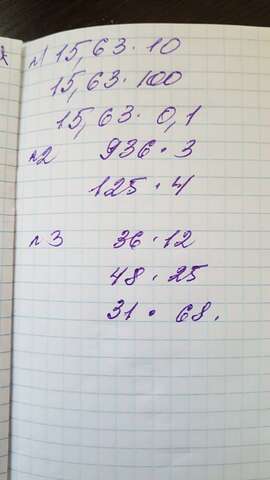 №1 15,63 · 10
15,63 · 100
15,63 · 0,1
№2 936 · 3
125 · 4
№3 36 · 12
48 · 25
31 · 68.